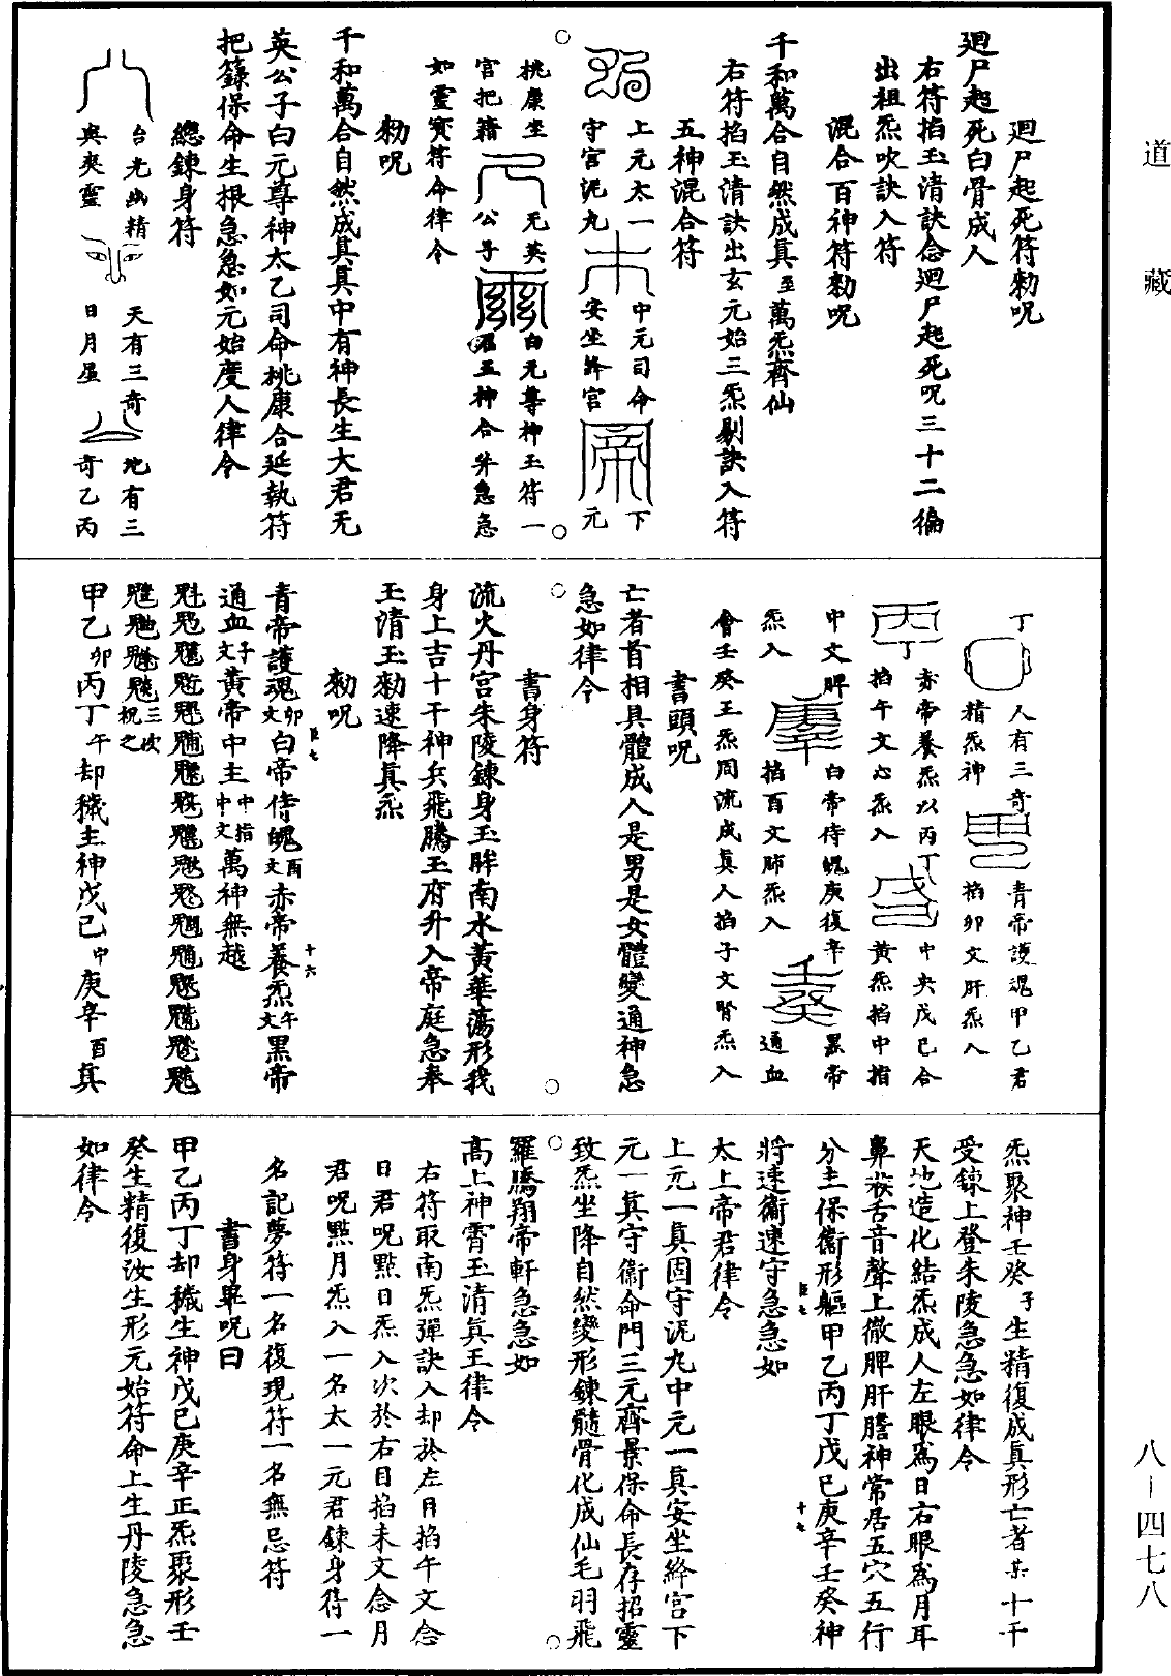 道藏
八—四七八
廻尸起死符勑呪
廻尸起死白骨成人
右符掐玉清訣念廻尸起死呪三十二徧
出祖炁吹訣入符
混合百神符勑呪
千和萬合自然成真至萬炁齊仙
右符掐玉清訣出玄元始三炁剔訣入符
五神混合符
上元太一 中元司命 下
守宮泥丸 安坐絳宮 元
桃康坐 无英 白元尊神玉符一
宮把籍 公子 召五神合并急急
如靈寶符命律令
勑呪
千和萬合自然成真真中有神長生大君无
英公子白元尊神太乙司命桃康合延執符
把籙保命生根急急如元始度人律令
總鍊身符
台光幽精 天有三奇 地有三
與爽靈 日月星 奇乙丙
丁 人有三奇 青帝護魂甲乙君
精炁神 甲乙 掐卯文肝炁入
丙丁 赤帝養炁以丙丁 中央戊己合
掐午文心炁入 戊己 黃炁掐中指
中文脾 庚辛 白帝侍魄庚復辛 黑帝
炁入 掐酉文肺炁入 壬癸 通血
會壬癸王炁周流成真人掐子文腎炁入
書頭呪
亡者首相具體成人是男是女體變通神急
急如律令
書身符
流火丹宮朱陵鍊身玉眸南水黃華蕩形我
身上吉十干神兵飛騰玉府升入帝庭急奉
玉清玉勑速降真炁
勑呪
青帝護魂卯文白帝侍魄酉文赤帝養炁午文黑帝
通血子文黃帝中主中指中文萬神無越
甲乙卯丙丁午却穢主神戊己中庚辛酉真
炁聚神壬癸子生精復成真形亡者某十千
受鍊上登朱陵急急如律令
天地造化結炁成人左眼為日右眼為月耳
鼻猴舌音聲上徹脾肝膽神常居五穴五行
分主保衞形軀甲乙丙丁戊己庚辛壬癸神
將速衞速守急急如
太上帝君律令
上元一真固守泥丸中元一真安坐絳宮下
元一真守衞命門三元齊景保命長存招靈
致炁坐降自然變形鍊髓骨化成仙毛羽飛
羅騰翔帝軒急急如
高上神霄玉清真王律令
右符取南炁彈訣入却於左目掐午文念
日君呪點日炁入次於右目掐未文念月
君呪點月炁入一名太一元君鍊身符一
名記夢符一名復現符一名無忌符
書身畢呪曰
甲乙丙丁却穢生神戊己庚辛正炁聚形壬
癸生精復汝生形元始符命上生丹陵急急
如律令